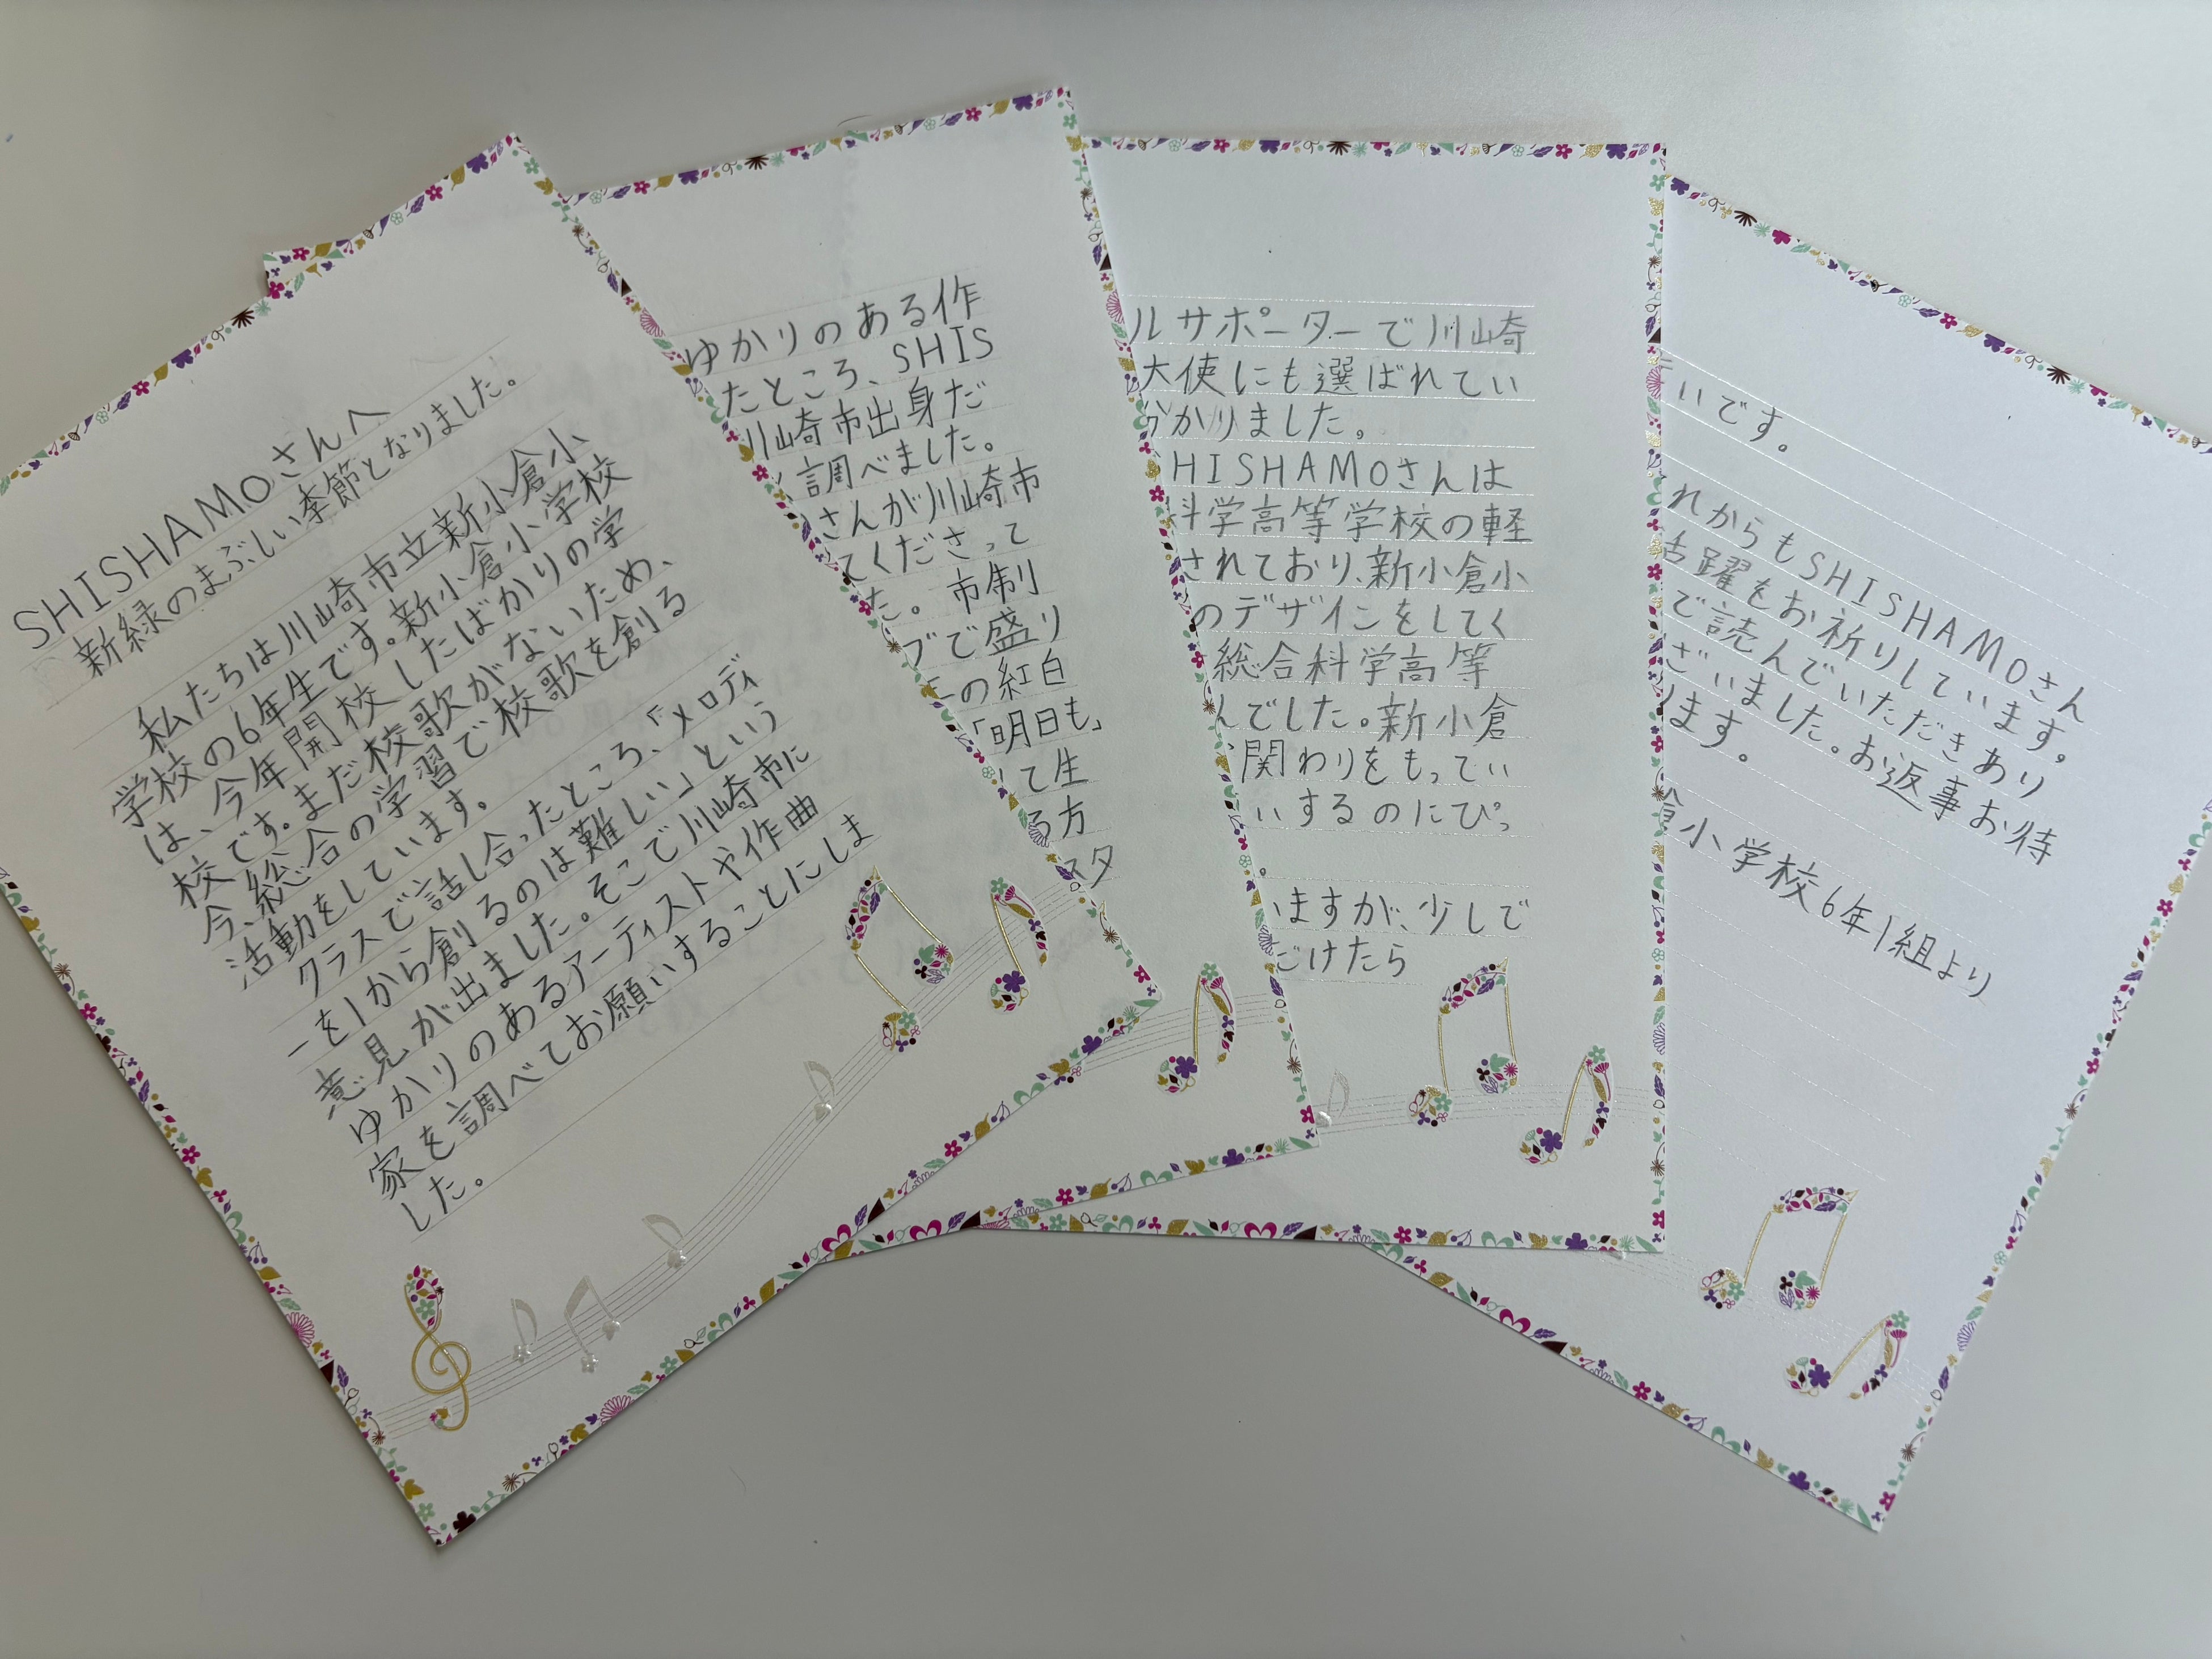 SHISHAMOさんへ
新緑のまぶしい季節となりました。
私たちは川崎市立新小倉小
学校の6年生です。新小倉小学校
は、今年開校したばかりの学
校です。まだ校歌がないため、
今、総合の学習で校歌を創る
活動をしています。
クラスで話し合ったところ、「メロディ
ーを1から創るのは難しい」という
意見が出ました。そこで川崎市に
ゆかりのあるアーティストや作曲
家を調べてお願いすることにしま
した。
ゆかりのある作
たところ、SHIS
川崎市出身だ
調べました。
さんが川崎市
てくださって
た。市制
ブで盛り
の紅白
「明日も」
て生
る方
スタ
ルサポーターで川崎
大使にも選ばれてい
分かりました。
HISHAMOさんは
科学高等学校の軽
されており、新小倉小
のデザインをしてく
総合科学高等
んでした。新小倉
関わりをもってい
いするのにぴっ
いますが、少しで
だけたら
いです。
れからもSHISHAMOさん
活躍をお祈りしています。
で読んでいただきあり
ざいました。お返事お待
ます。
倉小学校6年1組より